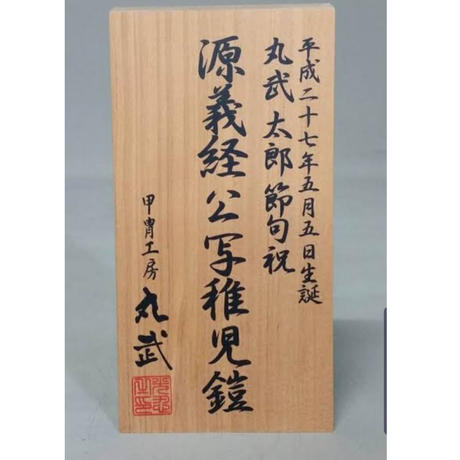 平成二十七年五月五日生誕
丸武太郎節句祝
源義経公写稚児鎧
甲冑工房 丸武